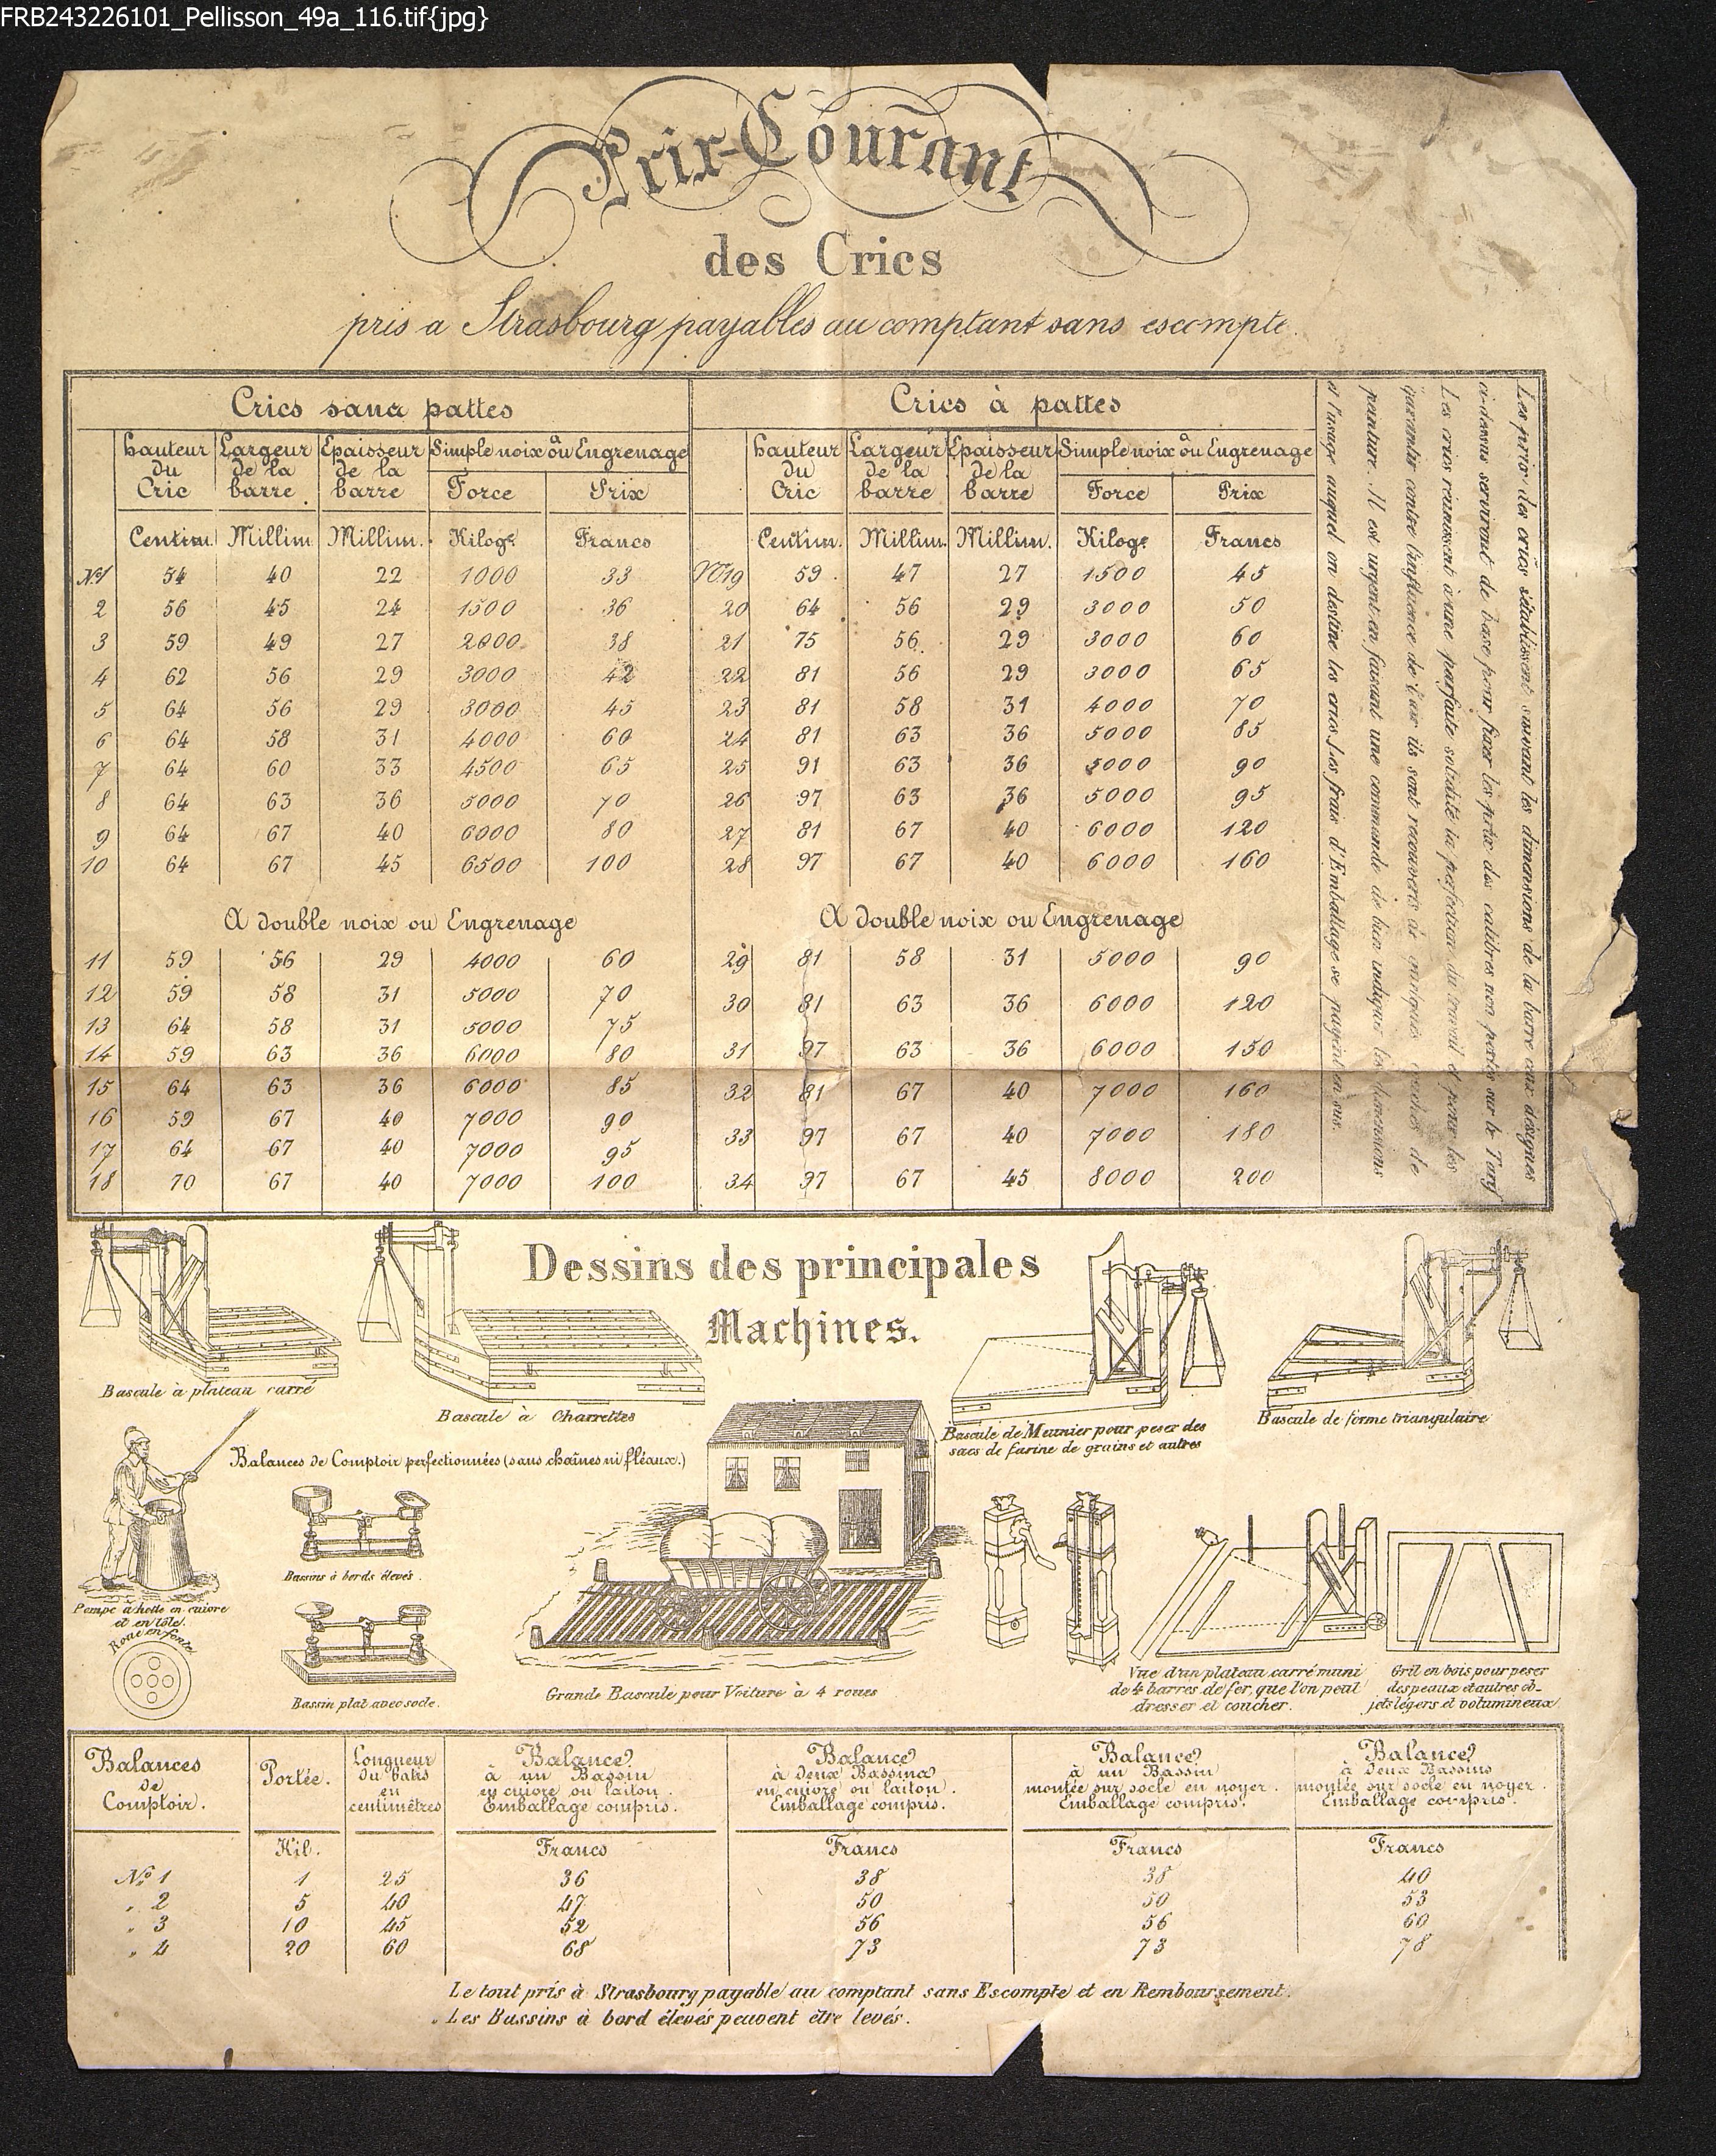 FRB243226101_Pellisson_49a_116.tif{jpg}
Prix-Courant
des Crics
pris a Strasbourg payables au comptant sans escompte.
Crics sans pattes
hauteur du Cric | Largeur de la barre | Epaisseur de la barre | Simple noix ou Engrenage
Force | Prix
Centim. | Millim. | Millim. | Kilogr. | Francs
N°1 54 40 22 1000 33
2 56 45 24 1500 36
3 59 49 27 2000 38
4 62 56 29 3000 42
5 64 56 29 3000 45
6 64 58 31 4000 60
7 64 60 33 4500 65
8 64 63 36 5000 70
9 64 67 40 6000 80
10 64 67 45 6500 100
A double noix ou Engrenage
11 59 56 29 4000 60
12 59 58 31 5000 70
13 64 58 31 5000 75
14 59 63 36 6000 80
15 64 63 36 6000 85
16 59 67 40 7000 90
17 64 67 40 7000 95
18 70 67 40 7000 100
Crics à pattes
hauteur du Cric | Largeur de la barre | Epaisseur de la barre | Simple noix ou Engrenage
Force | Prix
Centim. | Millim. | Millim. | Kilogr. | Francs
N°19 59 47 27 1500 45
20 64 56 29 3000 50
21 75 56 29 3000 60
22 81 56 29 3000 65
23 81 58 31 4000 70
24 81 63 36 5000 85
25 91 63 36 5000 90
26 97 63 36 5000 95
27 81 67 40 6000 120
28 97 67 40 6000 160
A double noix ou Engrenage
29 81 58 31 5000 90
30 81 63 36 6000 120
31 97 63 36 6000 150
32 81 67 40 7000 160
33 97 67 40 7000 180
34 97 67 45 8000 200
Les prix des crics s'établissent suivant les dimensions de la barre ceux désignés
ci-dessus serviront de base pour fixer les prix des calibres non portés sur le Tarif
Les crics réunissent à une parfaite solidité la perfection du travail et pour les
garantir contre l'influence de l'air ils sont recouverts de couches de
peinture. Il est urgent en faisant une commande de bien indiquer les dimensions
et l'usage auquel on destine les crics. Les frais d'Emballage se payent en sus.
Dessins des principales
Machines.
Bascule à plateau carré
Bascule à Charrettes
Bascule de Meunier pour peser des
sacs de farine de grains et autres
Bascule de forme triangulaire
Balances de Comptoir perfectionnées (sans chaînes ni fléaux.)
Bassins à bords élevés.
Pompe à hotte en cuivre
et en tôle.
Roue en fonte
Bassin plat avec socle.
Grande Bascule pour Voiture à 4 roues
Vue d'un plateau carré muni
de 4 barres de fer, que l'on peut
dresser et coucher.
Gril en bois pour peser
des peaux et autres ob-
jets légers et volumineux.
Balances de Comptoir. | Portée. | Longueur du batis en centimètres | Balance à un Bassin en cuivre ou laiton. Emballage compris. | Balance à deux Bassins en cuivre ou laiton. Emballage compris. | Balance à un Bassin montée sur socle en noyer. Emballage compris. | Balance à deux Bassins montée sur socle en noyer. Emballage compris.
Kil. | Francs | Francs | Francs | Francs
N° 1 1 25 36 38 38 40
" 2 5 40 47 50 50 53
" 3 10 45 52 56 56 60
" 4 20 60 68 73 73 78
Le tout pris à Strasbourg payable au comptant sans Escompte et en Remboursement.
Les Bassins à bord élevés peuvent être levés.